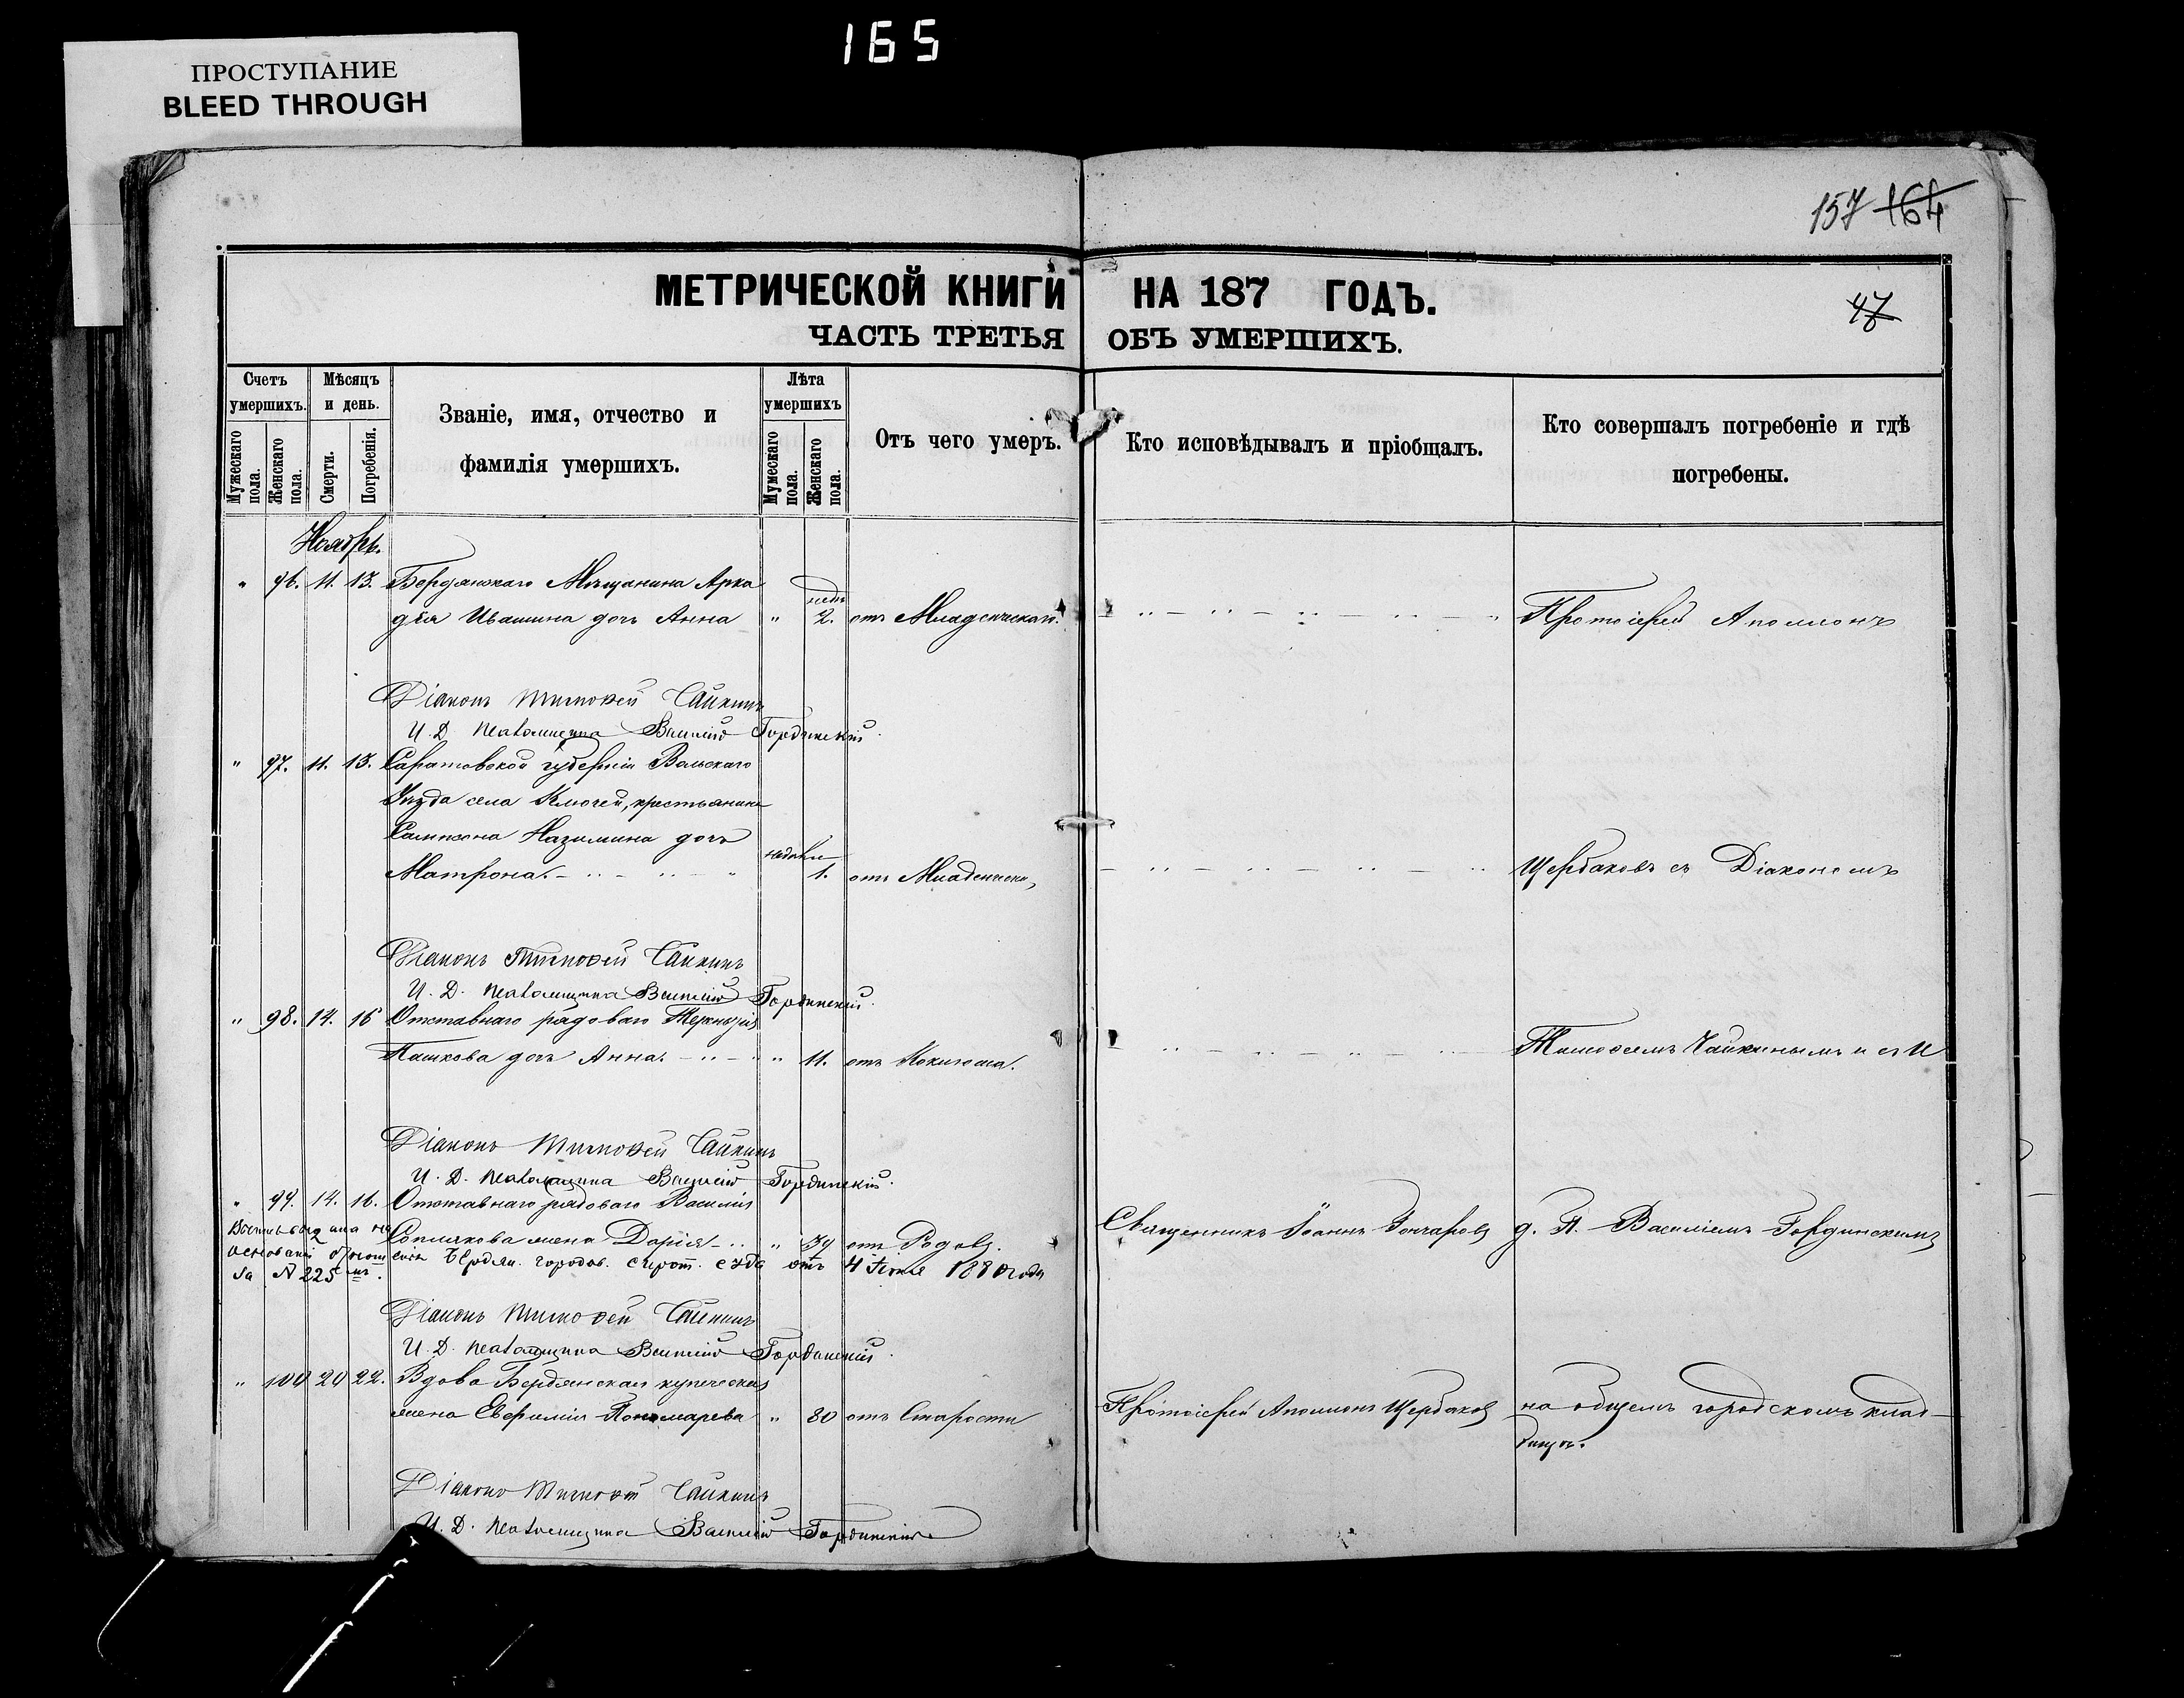 165
ПРОСТУПАНИЕ
BLEED THROUGH
157 164
МЕТРИЧЕСКОЙ КНИГИ НА 187 ГОДЪ.
47
ЧАСТЬ ТРЕТЬЯ ОБЪ УМЕРШИХЪ.
Счетъ умершихъ.
Мужескаго пола.
Женскаго пола.
Мѣсяцъ и день.
Смерти.
Погребенія.
Званіе, имя, отчество и фамилія умершихъ.
Лѣта умершихъ
Мужескаго пола.
Женскаго пола.
Отъ чего умеръ.
Кто исповѣдывалъ и пріобщалъ.
Кто совершалъ погребеніе и гдѣ погребены.
Ноябрь.
" 96. 11. 13. Бердянскаго Мѣщанина Арка
дія Ивашина дочь Анна " 2. нед. отъ Младенческой. Протоіерей Аполлонъ
Діаконъ Тимофей Чайкинъ
И. Д. Псаломщика Василій Гординскій.
" 97. 11. 13. Саратовской губерніи Вольскаго
Уѣзда села Ключей, крестьянина
дочь
Матрона. 1. отъ Младенческ. Щербаковъ съ Діакономъ
Діаконъ Тимофей Чайкинъ
И. Д. Псаломщика Василій Гординскій.
" 98. 14. 16 Отставнаго рядоваго
Пашкова дочь Анна. " 11. отъ Тимофеемъ Чайкинымъ и съ И
Діаконъ Тимофей Чайкинъ
И. Д. Псаломщика Василій Гординскій.
" 99. 14. 16. Отставнаго рядоваго Василія
жена Дарія " 39 отъ Родовъ. Священникъ Іоаннъ Гончаровъ д. П. Василіемъ Гординскимъ
основаніи Бердян. городов. сирот. суда отъ 4 Іюня 1880 года
За № 225мъ.
Діаконъ Тимофей Чайкинъ
И. Д. Псаломщика Василій Гординскій.
" 100 20 22. Вдова Бердянская купеческая
жена Евфимія Пономарева " 80 отъ Старости Протоіерей Аполлонъ Щербаковъ на общемъ городскомъ клад-
бищѣ.
Діаконъ Тимофей Чайкинъ
И. Д. Псаломщика Василій Гординскій